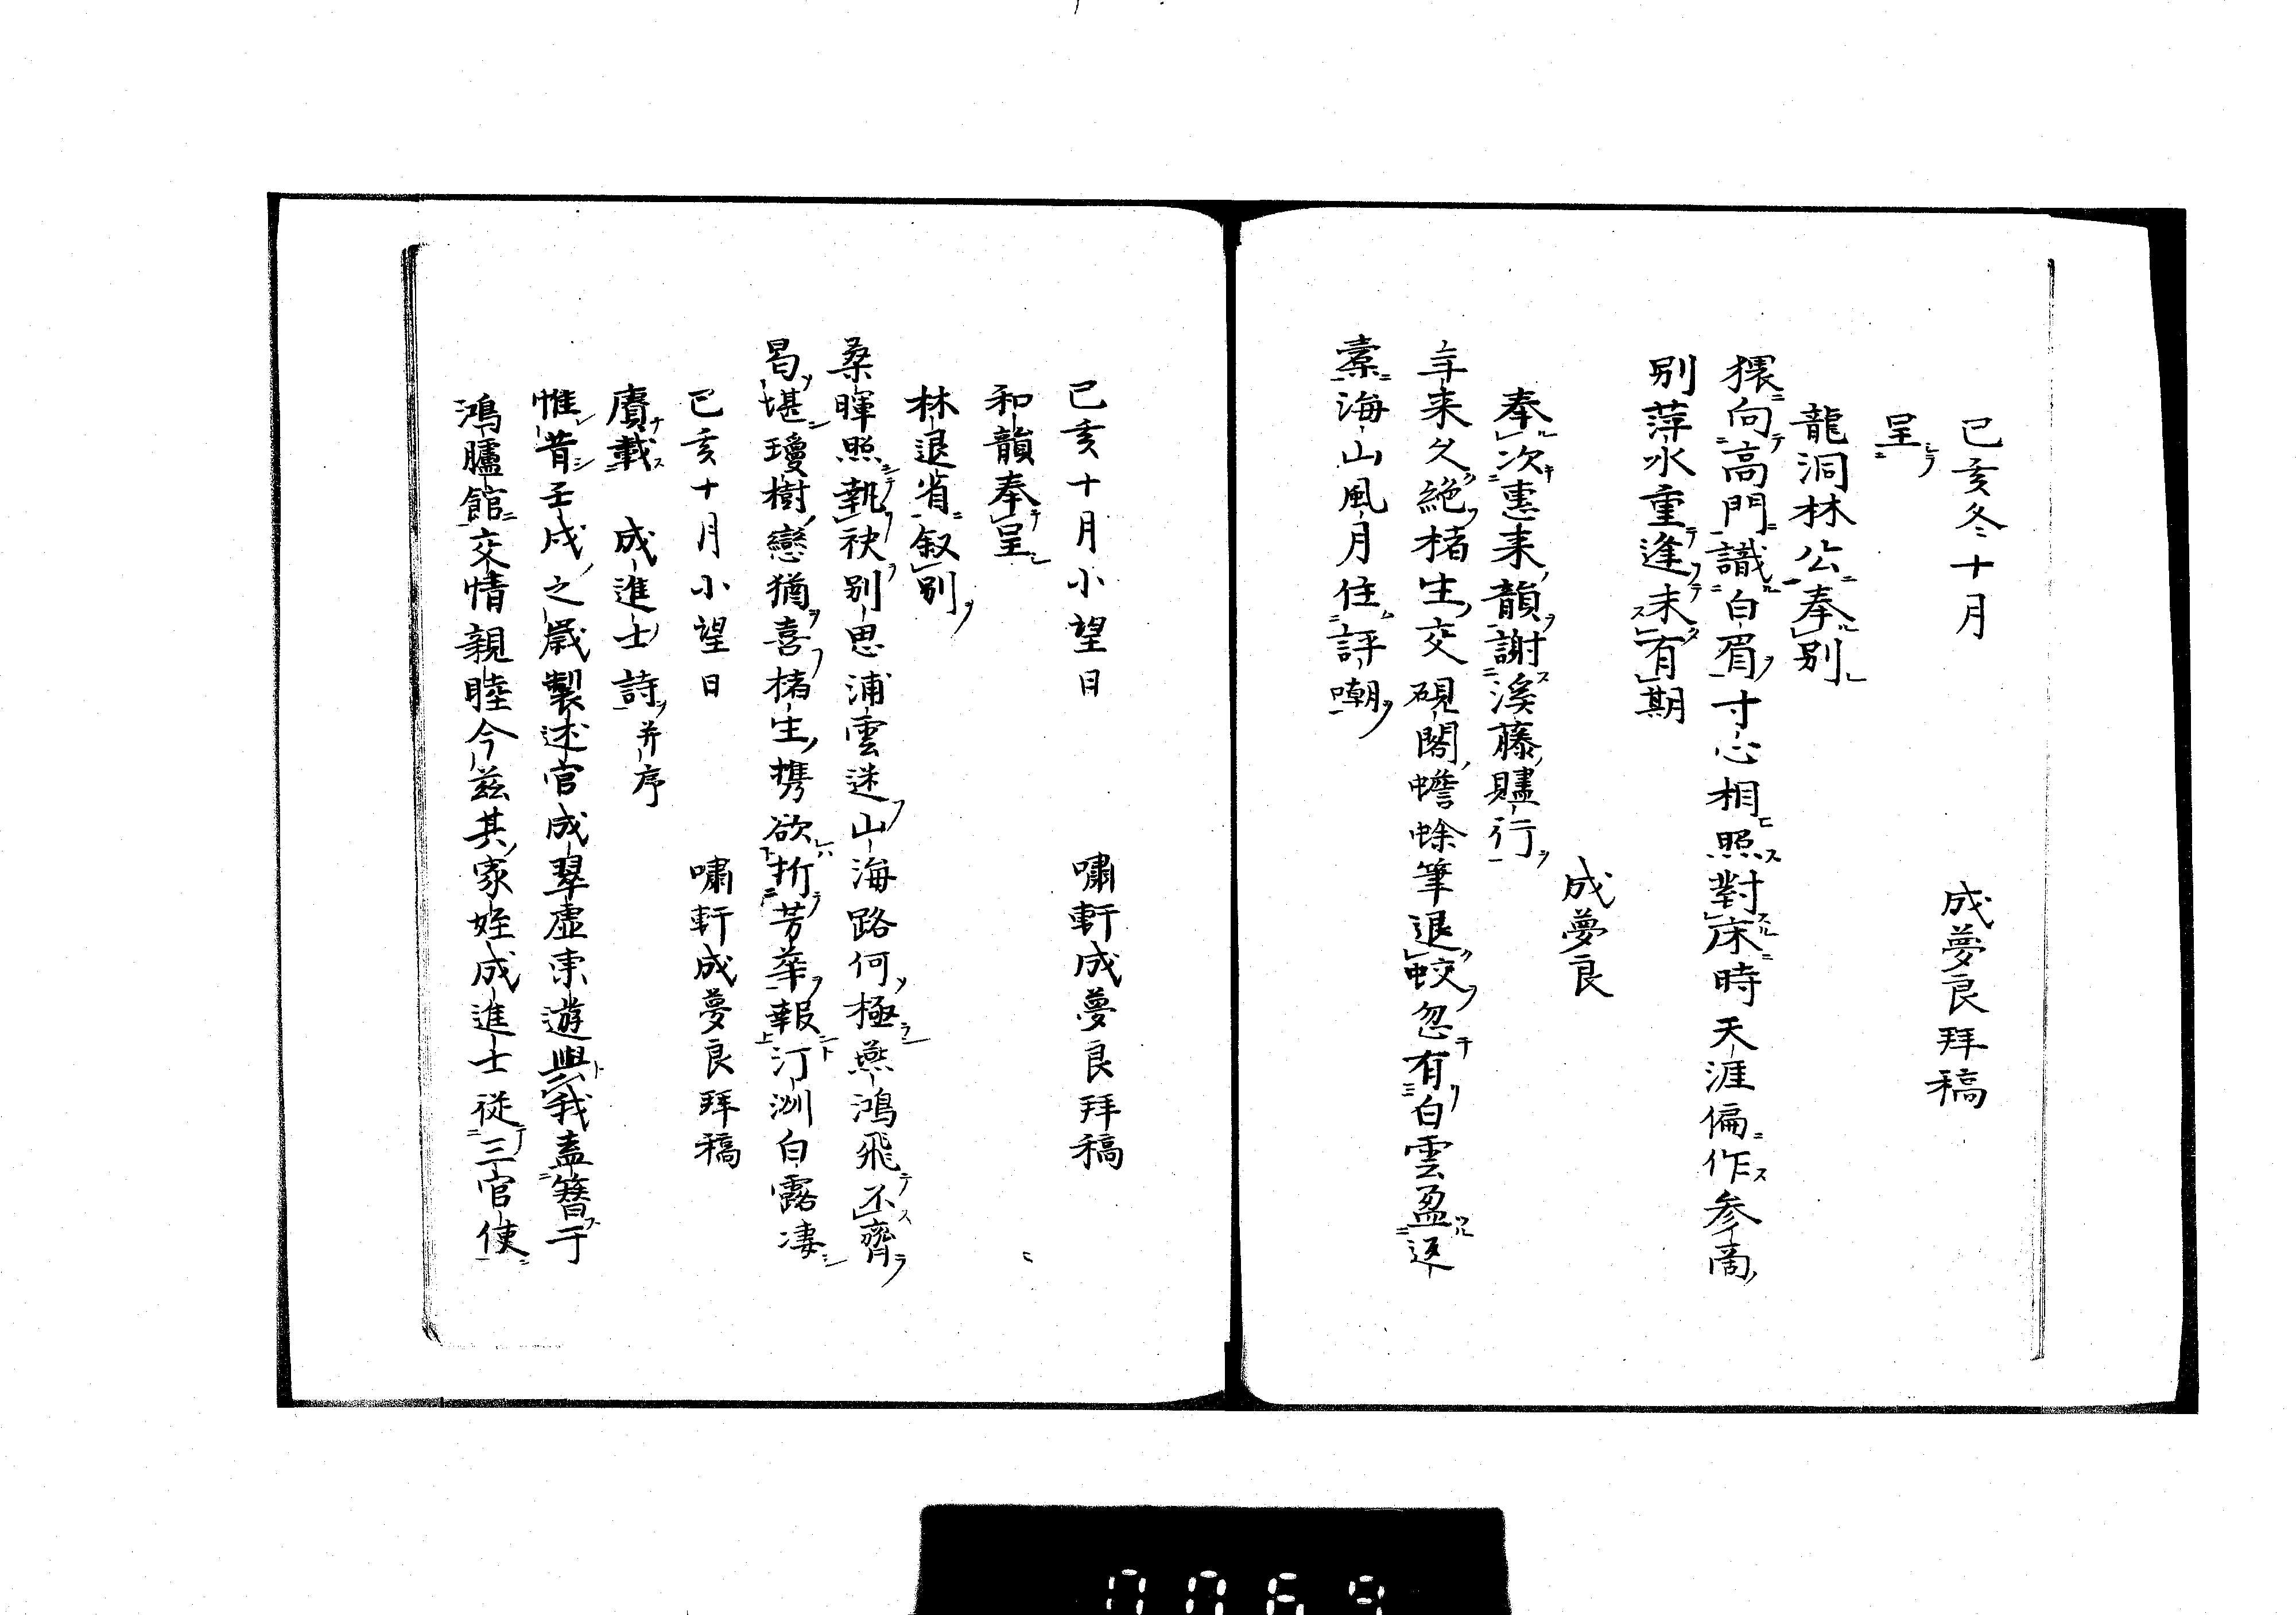 己亥冬十月　成夢良拜稿
呈
龍洞林公奉別
猥向高門識白眉寸心相照對床時天涯偏作参商
別萍水重逢未有期
成夢良
奉次惠来韻謝溪藤贐行
年来久絶楮生交硯閣蟾蜍筆退蛟忽有白雲盈返
橐海山風月住評嘲
己亥十月小望日　嘯軒成夢良拜稿
和韻奉呈
林退省叙別
桑暉照執袂別思浦雲迷山海路何極燕鴻飛不齊
曷堪瓊樹戀猶喜楮生携欲折芳華報汀洲白露凄
己亥十月小望日　嘯軒成夢良拜稿
賡載　成進士詩并序
惟昔壬戌之歳製述官成翠虚東遊與我盍簪于
鴻臚館交情親睦今茲其家姪成進士從三官使
0069